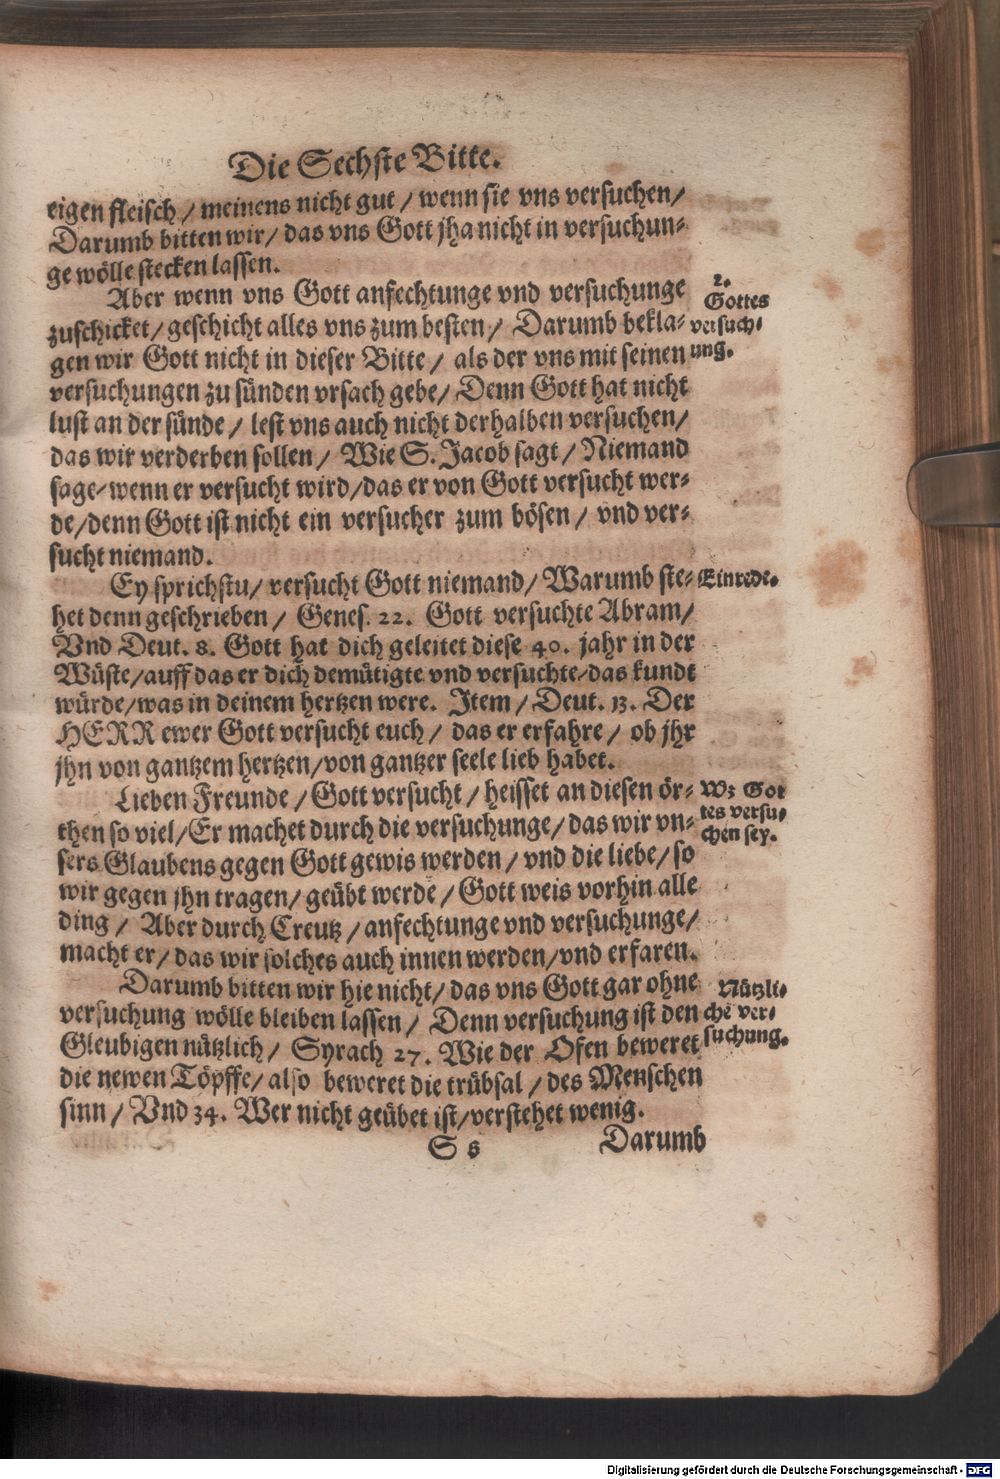 Die Sechste Bitte.
eigen fleisch / meinens nicht gut / wenn sie vns versuchen /
Darumb bitten wir / das vns Gott jha nicht in versuchun-
ge wölle stecken lassen.
Aber wenn vns Gott anfechtunge vnd versuchunge
zuschicket / geschicht alles vns zum besten / Darumb bekla-
gen wir Gott nicht in dieser Bitte / als der vns mit seinen
versuchungen zu sünden vrsach gebe / Denn Gott hat nicht
lust an der sünde / lest vns auch nicht derhalben versuchen /
das wir verderben sollen / Wie S. Jacob sagt / Niemand
sage / wenn er versucht wird / das er von Gott versucht wer-
de / denn Gott ist nicht ein versucher zum bösen / vnd ver-
sucht niemand.
2.
Gottes
versuch-
ung.
Ey sprichstu / versucht Gott niemand / Warumb ste-
het denn geschrieben / Genes. 22. Gott versuchte Abram /
Vnd Deut. 8. Gott hat dich geleitet diese 40. jahr in der
Wüste / auff das er dich demütigte vnd versuchte / das kundt
würde / was in deinem hertzen were. Item / Deut. 13. Der
HERR ewer Gott versucht euch / das er erfahre / ob jhr
jhn von gantzem hertzen / von gantzer seele lieb habet.
Einrede.
Lieben Freunde / Gott versucht / heisset an diesen ör-
then so viel / Er machet durch die versuchunge / das wir vn-
sers Glaubens gegen Gott gewis werden / vnd die liebe / so
wir gegen jhn tragen / geübt werde / Gott weis vorhin alle
ding / Aber durch Creutz / anfechtunge vnd versuchunge /
macht er / das wir solches auch innen werden / vnd erfaren.
Wz Got
tes versu-
chen sey.
Darumb bitten wir hie nicht / das vns Gott gar ohne
versuchung wölle bleiben lassen / Denn versuchung ist den
Gleubigen nützlich / Syrach 27. Wie der Ofen beweret
die newen Töpffe / also beweret die trübsal / des Menschen
sinn / Vnd 34. Wer nicht geübet ist / verstehet wenig.
Nützli-
che ver-
suchung.
S s
Darumb
Digitalisierung gefördert durch die Deutsche Forschungsgemeinschaft - DFG